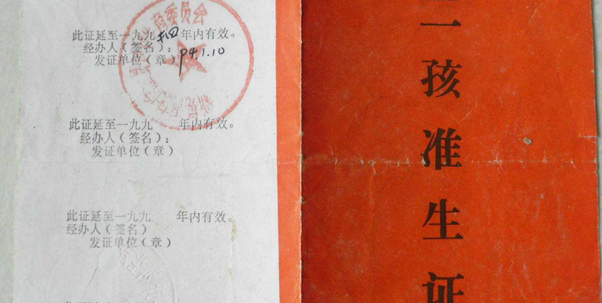 此证延至一九九四年内有效。
经办人(签名):
发证单位(章)
94.1.10
育委员会
此证延至一九九 年内有效。
经办人(签名):
发证单位(章)
此证延至一九九 年内有效。
经办人(签名)
发证单位(章)
二孩准生证